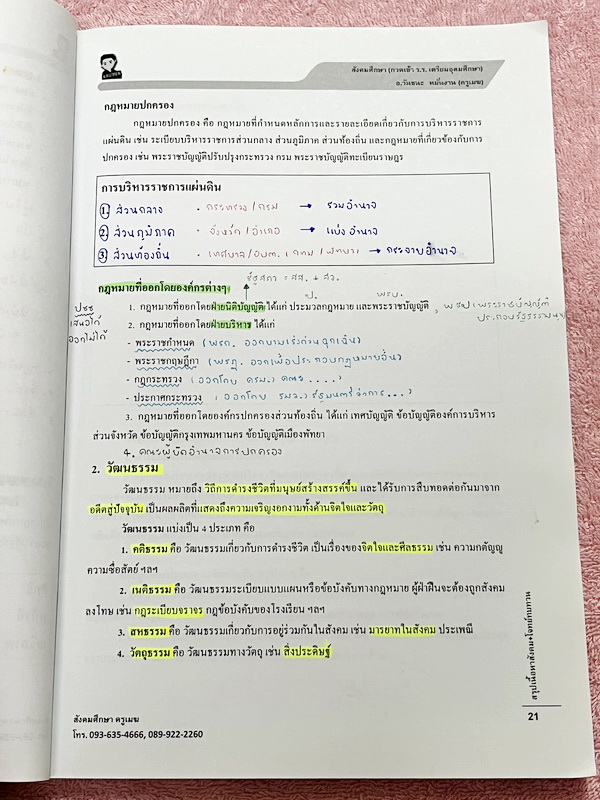 สังคมศึกษา (กวดเข้า ร.ร. เตรียมอุดมศึกษา)
อ.วันชนะ หมื่นงาม (ครูเมฆ)
กฎหมายปกครอง
กฎหมายปกครอง คือ กฎหมายที่กำหนดหลักการและรายละเอียดเกี่ยวกับการบริหารราชการ
แผ่นดิน เช่น ระเบียบบริหารราชการส่วนกลาง ส่วนภูมิภาค ส่วนท้องถิ่น และกฎหมายที่เกี่ยวข้องกับการ
ปกครอง เช่น พระราชบัญญัติปรับปรุงกระทรวง กรม พระราชบัญญัติทะเบียนราษฎร
การบริหารราชการแผ่นดิน
1. ส่วนกลาง • กระทรวง / กรม → รวมอำนาจ
2. ส่วนภูมิภาค • จังหวัด / อำเภอ → แบ่งอำนาจ
3. ส่วนท้องถิ่น • เทศบาล / อบต. / กทม / พัทยา → กระจายอำนาจ
รัฐสภา = สส. + สว.
กฎหมายที่ออกโดยองค์กรต่างๆ
ป. พรบ.
1. กฎหมายที่ออกโดยฝ่ายนิติบัญญัติ ได้แก่ ประมวลกฎหมาย และพระราชบัญญัติ , พรป (พระราชบัญญัติ
ประกอบรัฐธรรมนูญ
ปชช
เสนอได้
ออกไม่ได้
2. กฎหมายที่ออกโดยฝ่ายบริหาร ได้แก่
- พระราชกำหนด (พรก. ออกยามเร่งด่วนฉุกเฉิน)
- พระราชกฤษฎีกา (พรฎ. ออกเพื่อประกอบกฎหมายอื่น)
- กฎกระทรวง (ออกโดย ครม.) คณะ ....)
- ประกาศกระทรวง (ออกโดย รมว.) รัฐมนตรีว่าการ...)
3. กฎหมายที่ออกโดยองค์กรปกครองส่วนท้องถิ่น ได้แก่ เทศบัญญัติ ข้อบัญญัติองค์การบริหาร
ส่วนจังหวัด ข้อบัญญัติกรุงเทพมหานคร ข้อบัญญัติเมืองพัทยา
4. คณะผู้ยึดอำนาจการปกครอง
2. วัฒนธรรม
วัฒนธรรม หมายถึง วิถีการดำรงชีวิตที่มนุษย์สร้างสรรค์ขึ้น และได้รับการสืบทอดต่อกันมาจาก
อดีตสู่ปัจจุบัน เป็นผลผลิตที่แสดงถึงความเจริญงอกงามทั้งด้านจิตใจและวัตถุ
วัฒนธรรม แบ่งเป็น 4 ประเภท คือ
1. คติธรรม คือ วัฒนธรรมเกี่ยวกับการดำรงชีวิต เป็นเรื่องของจิตใจและศีลธรรม เช่น ความกตัญญู
ความซื่อสัตย์ ฯลฯ
2. เนติธรรม คือ วัฒนธรรมระเบียบแบบแผนหรือข้อบังคับทางกฎหมาย ผู้ฝ่าฝืนจะต้องถูกสังคม
ลงโทษ เช่น กฎระเบียบจราจร กฎข้อบังคับของโรงเรียน ฯลฯ
3. สหธรรม คือ วัฒนธรรมเกี่ยวกับการอยู่ร่วมกันในสังคม เช่น มารยาทในสังคม ประเพณี
4. วัตถุธรรม คือ วัฒนธรรมทางวัตถุ เช่น สิ่งประดิษฐ์
สรุปเนื้อหาสังคม+โจทย์ทบทวน
21
สังคมศึกษา ครูเมฆ
โทร. 093-635-4666, 089-922-2260